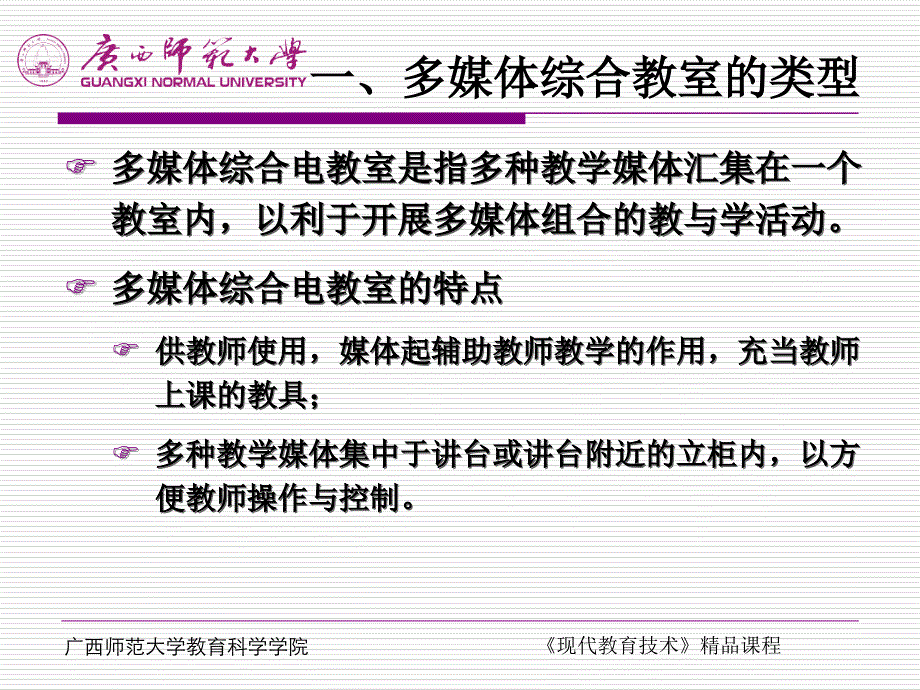 廣西師範大學
GUANGXI NORMAL UNIVERSITY
一、多媒体综合教室的类型
多媒体综合电教室是指多种教学媒体汇集在一个
教室内，以利于开展多媒体组合的教与学活动。
多媒体综合电教室的特点
供教师使用，媒体起辅助教师教学的作用，充当教师
上课的教具；
多种教学媒体集中于讲台或讲台附近的立柜内，以方
便教师操作与控制。
广西师范大学教育科学学院
《现代教育技术》精品课程